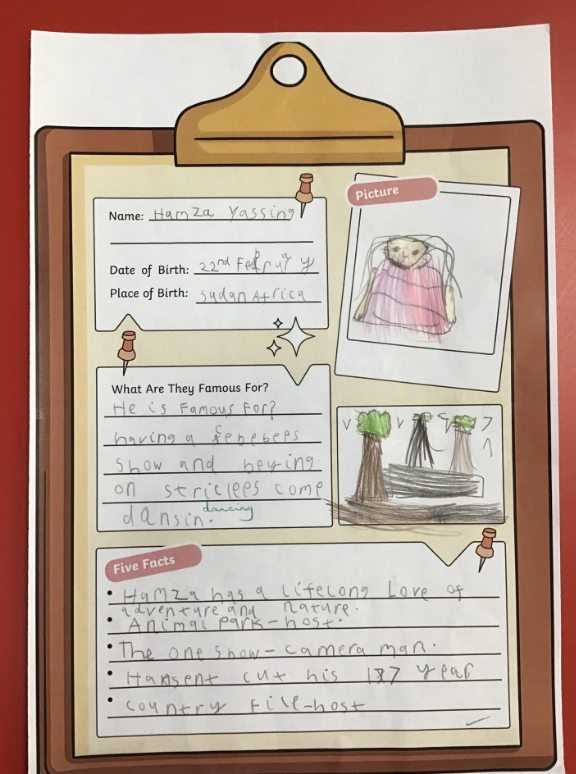 Picture
Name: Hamza Yassing
Date of Birth: 22nd Febru a y
Place of Birth: Sudan Africa
What Are They Famous For?
He is Famous For?
having a cebebees
show and beying
on striclees come
dansin. dancing
Five Facts
• Hamza has a lifelong Love of
adventure and nature.
• Animal Park-host.
• The one Show-camera man.
• Hansent cut his 187 year
• country File-host